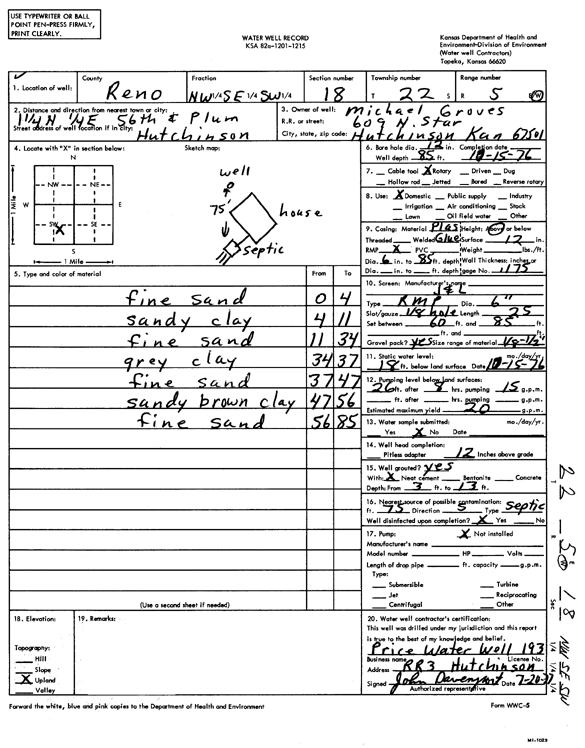 USE TYPEWRITER OR BALL
POINT PEN-PRESS FIRMLY,
PRINT CLEARLY.
WATER WELL RECORD
KSA 82a-1201-1215
Kansas Department of Health and
Environment-Division of Environment
(Water well Contractors)
Topeka, Kansas 66620
1. Location of well: County Reno Fraction NW 1/4 SE 1/4 SW 1/4 Section number 18 Township number T 22 S Range number R 5 E/W
2. Distance and direction from nearest town or city: 1 1/4 N 1/4 E 56th & Plum
Street address of well location if in city: Hutchinson
3. Owner of well: Michael Groves
R.R. or street: 609 N. Star
City, state, zip code: Hutchinson Kan 67501
4. Locate with "X" in section below: Sketch map:
N
NW NE
W E
SW X SE
S
1 Mile
1 Mile
well
75'
house
septic
6. Bore hole dia. 12 in. Completion date
Well depth 85 ft. 10-15-76
7. Cable tool X Rotary Driven Dug
Hollow rod Jetted Bored Reverse rotary
8. Use: X Domestic Public supply Industry
Irrigation Air conditioning Stock
Lawn Oil field water Other
9. Casing: Material Plas Height: Above or below
Threaded Welded Glue Surface 12 in.
RMP X PVC Weight lbs./ft.
Dia. 6 in. to 85 ft. depth Wall Thickness: inches or
Dia. in. to ft. depth gage No. .175
5. Type and color of material From To
fine sand 0 4
sandy clay 4 11
fine sand 11 34
grey clay 34 37
fine sand 37 47
sandy brown clay 47 56
fine sand 56 85
(Use a second sheet if needed)
10. Screen: Manufacturer's name
Type RMP Dia. 6"
Slot/gauze 1/8 hole Length 25
Set between 60 ft. and 85 ft.
ft. and ft.
Gravel pack? yes Size range of material 1/8-1/2"
11. Static water level: mo./day/yr.
18 ft. below land surface Date 10-15-76
12. Pumping level below land surfaces:
26 ft. after 8 hrs. pumping 15 g.p.m.
ft. after hrs. pumping g.p.m.
Estimated maximum yield 20 g.p.m.
13. Water sample submitted: mo./day/yr.
Yes X No Date
14. Well head completion:
Pitless adapter 12 Inches above grade
15. Well grouted? yes
With: X Neat cement Bentonite Concrete
Depth: From 3 ft. to 13 ft.
16. Nearest source of possible contamination:
ft. 75 Direction S Type Septic
Well disinfected upon completion? X Yes No
17. Pump: X Not installed
Manufacturer's name
Model number HP Volts
Length of drop pipe ft. capacity g.p.m.
Type:
Submersible Turbine
Jet Reciprocating
Centrifugal Other
18. Elevation:
Topography:
Hill
Slope
X Upland
Valley
19. Remarks:
20. Water well contractor's certification:
This well was drilled under my jurisdiction and this report
is true to the best of my knowledge and belief.
Price Water Well 193
Business name License No.
Address RR3 Hutchinson
Signed John Davenport Date 7-20-77
Authorized representative
Forward the white, blue and pink copies to the Department of Health and Environment
Form WWC-5
MI-1023
T 22 R 5 W E Sec 18 1/4 1/4 1/4 NW SE SW